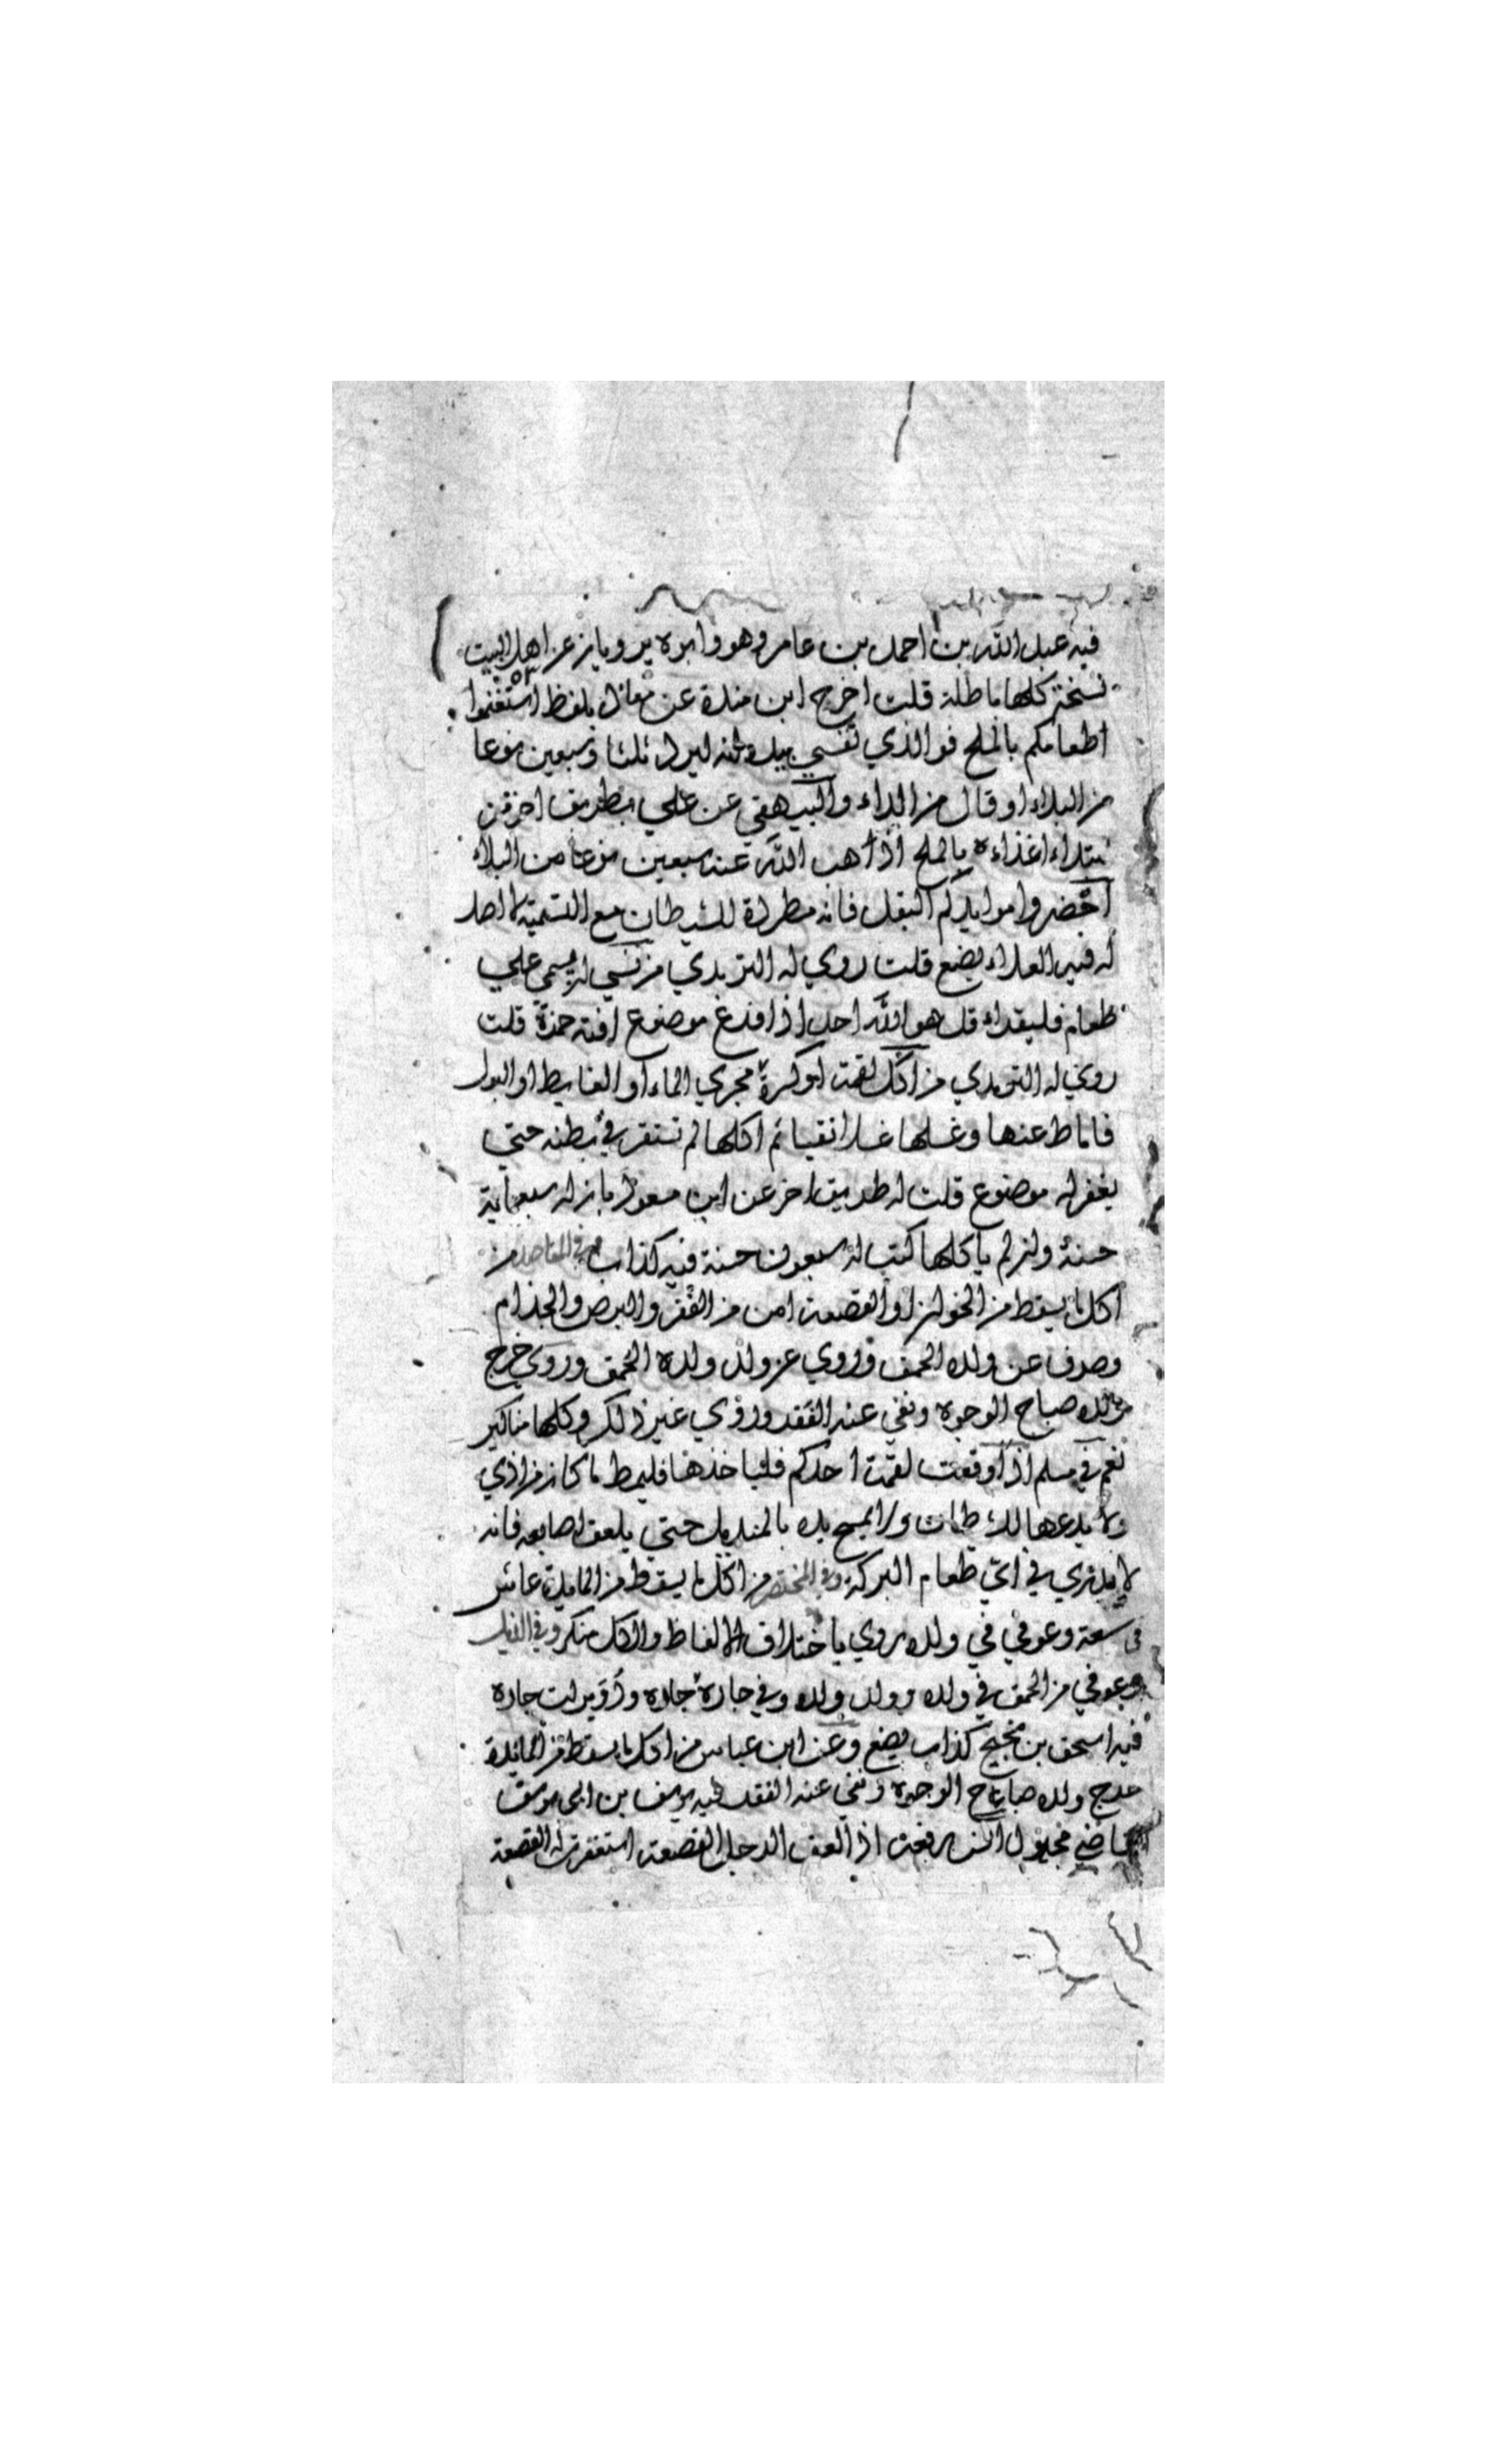 فيه عبد الله بن احمد بن عامر وهو وابوه يرويان عن اهل البيت
نسخة كلها باطلة قلت اخرج ابن مندة عن معاذ بلفظ استغنموا
اطعامكم بالملح فوالذي نفسي بيده انه ليرد ثلثا وسبعين نوعا
من البلاء او قال من الداء والبيهقي عن علي بطريق اخر من
ابتداء غذاءه بالملح اذهب الله عنه سبعين نوعا من البلاء
احضروا موايدكم البقل فانه مطردة للشيطان مع التسمية لا اصل
له فيه العلاء يضع قلت روي له الترمذي من نسي ان يسمي علي
طعام فليقراء قل هو الله احد اذا فرغ موضوع افته حمزة قلت
روي له الترمدي من اكل لقمة او كسرة مجري الماء او الغايط او البول
فاماط عنها وغسلها غسلا نقيا ثم اكلها لم تستقر في بطنه حتي
يغفر له موضوع قلت له طريق اخر عن ابن مسعود بان له سبعماية
حسنة وان لم ياكلها كتب له سبعون حسنة فيه كذاب في المقاصد من
اكل ما يسقط من الخوان او القصعة امن من الفقر والبرص والجذام
وصرف عن ولده الحمق وروي عن ولد ولده الحمق وروي خرج
ولده صباح الوجوه ونفي عنه الفقر وروي غير ذلك وكلها مناكير
نعم في مسلم اذا وقعت لقمة احدكم فلياخذها فليمط ما كان من اذي
ولا يدعها للشيطان ولا يمسح يده بالمنديل حتي يلعق اصابعه فانه
لا يدري في اي طعام البركة وفي المختصر من اكل ما يسقط من المايدة عاش
في سعة وعوفي في ولده روي باختلاف الالفاظ والكل منكر وفي الذيل
وعوفي من الحمق في ولده وولد ولده وفي جاره وجار جاره ودويرات جاره
فيه اسحق بن نجيح كذاب يضع وعن ابن عباس من اكل ما يسقط من المائدة
خرج ولده صباح الوجوه ونفي عنه الفقر فيه يوسف بن ابي يوسف
القاضي مجهول انس رفعه اذا لعق الرجل القصعة استغفرت له القصعة